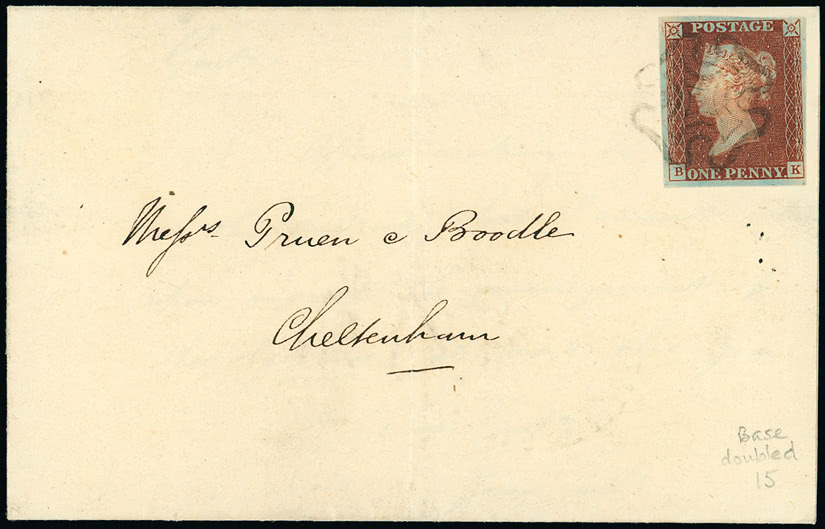 POSTAGE
B ONE PENNY. K
Messrs. Pruen & Boodle
Cheltenham
Base
doubled
15